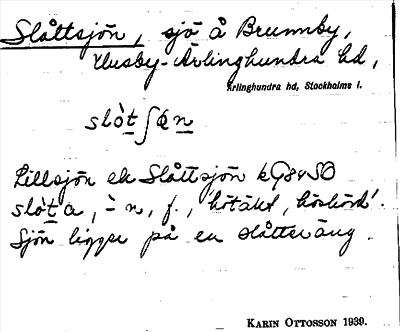 Slåttsjön, sjö å Brunnby,
Husby-Ärlinghundra hd,
Ärlinghundra hd, Stockholms l.
slò̀t ʃɵn
Lillsjön el Slåttsjön kG84SO
slò̀t a, -̀ n, f.,
Sjön ligger på en slåtteräng.
KARIN OTTOSSON 1939.